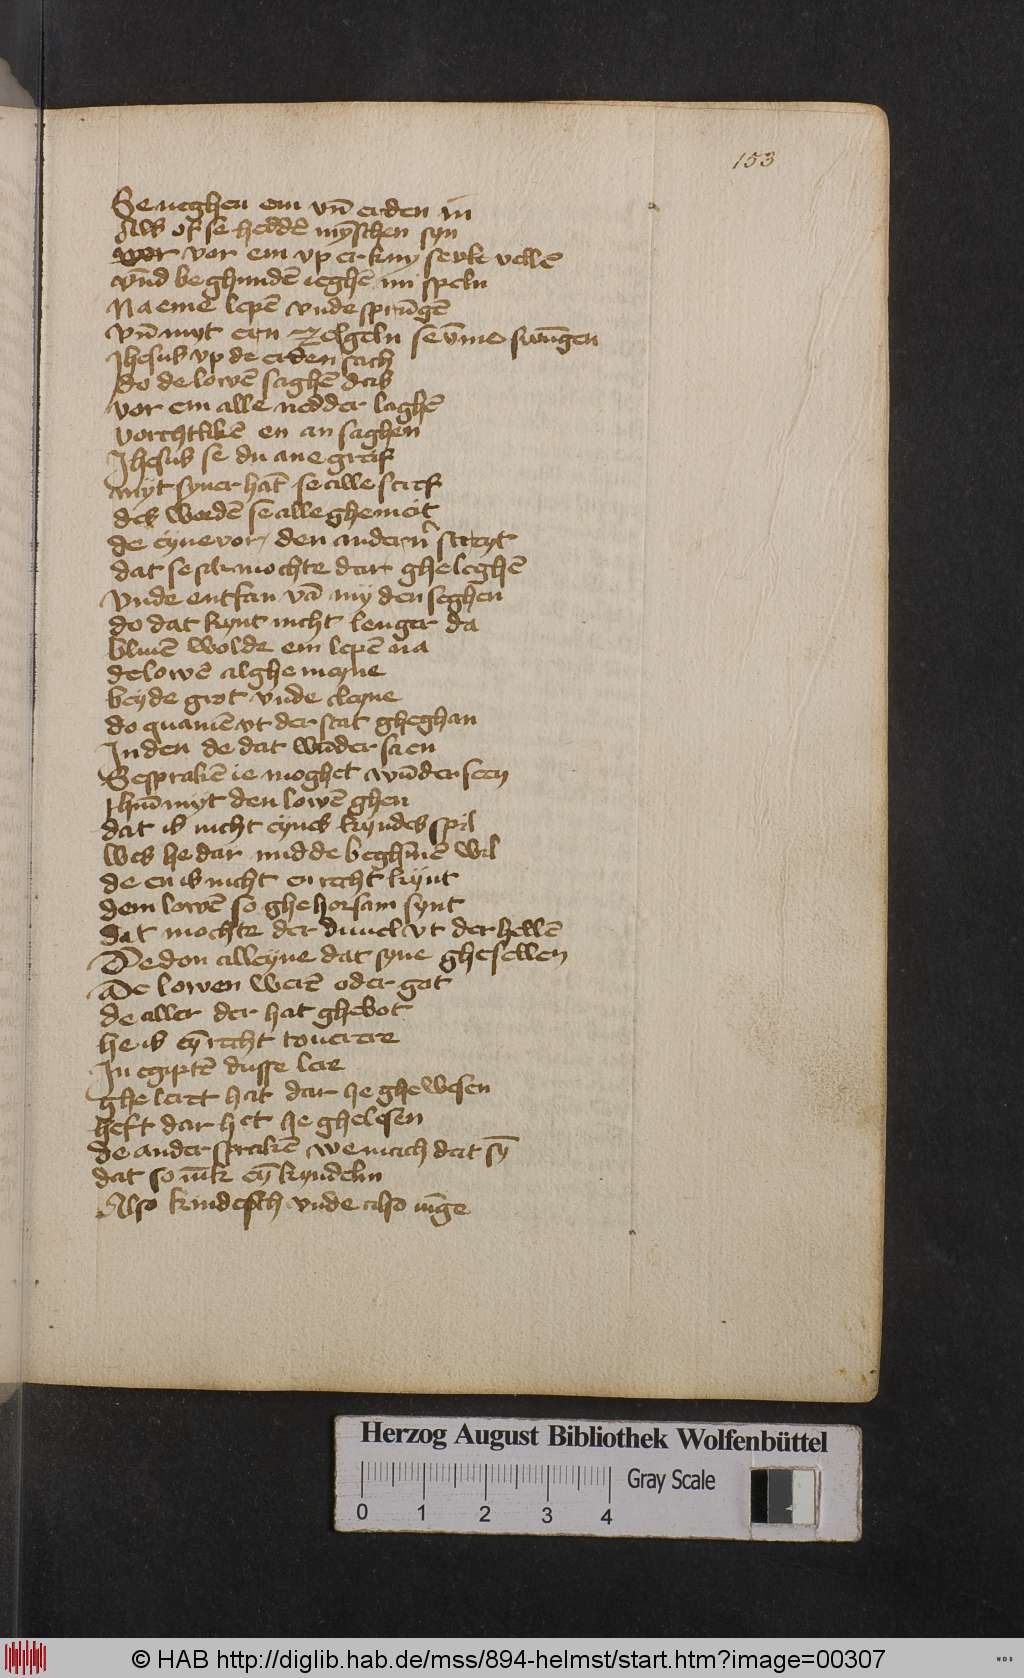 153
Se neghen em vn̄ erden in
Als of se heddē mynschen syn
vor em vp er kny se vke vellē
vn̄d beghundē ieghē im speln
Na eme lepē vnde sprūgē
Vn̄ myt ern zelgeln se v̄me swūgen
Jhesus vp de erden sach
do de lowē saghē das
vor em alle nedder laghē
vorchtlikē en an saghen
Jhesus se du ane gref
myt syner hāt se alle stref
des wordē se alle ghemeit
de eyne vor den andern streyt
dat se sik mochte dar gheleghē
Vnde entfan vā my den seghen
do dat kynt nicht lenger da
bliuē wolde em lepē na
de lowē alghemeyne
beyde grot vnde cleyne
do quamē vt der stat gheghan
Jn den de dat wūder sa en
Se sprakē ie moghet wūder seen
Jhm̄ myt den lowē ghen
dat is nicht eynes kyndes spil
wes he dar midde beghīnē wil
de en is nicht en recht kynt
dem lowē so ghehorsam synt
dat mochte der duuel vt der hellē
De don alleyne dat syne ghesellen
De lowen werē oder got
de aller der hat ghebot
he is eȳ recht touerere
Jn egiptē dusse lere
gheleret hat dar he ghewesen
heft dar het he ghelesen
de ander sprakē we mach dat sȳ
dat so iūk eȳ kyndelin
Also kindesch vnde also iūge
Herzog August Bibliothek Wolfenbüttel
Gray Scale
0 1 2 3 4
© HAB http://diglib.hab.de/mss/894-helmst/start.htm?image=00307